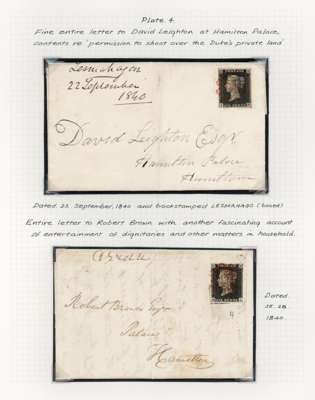 Plate 4.
Fine entire letter to David Leighton at Hamilton Palace,
contents re 'permission to shoot over the Duke's private land'
Lesmahagow
22 September
1840
POSTAGE
David Leighton Esqr
Hamilton Palace
Hamilton
Dated 22 September, 1840 and backstamped LESMAHAGO (boxed)
Entire letter to Robert Brown with another fascinating account
of entertainment of dignitaries and other matters in household.
POSTAGE
Robert Brown Esqr
Palace
Hamilton
4
Dated
1840.